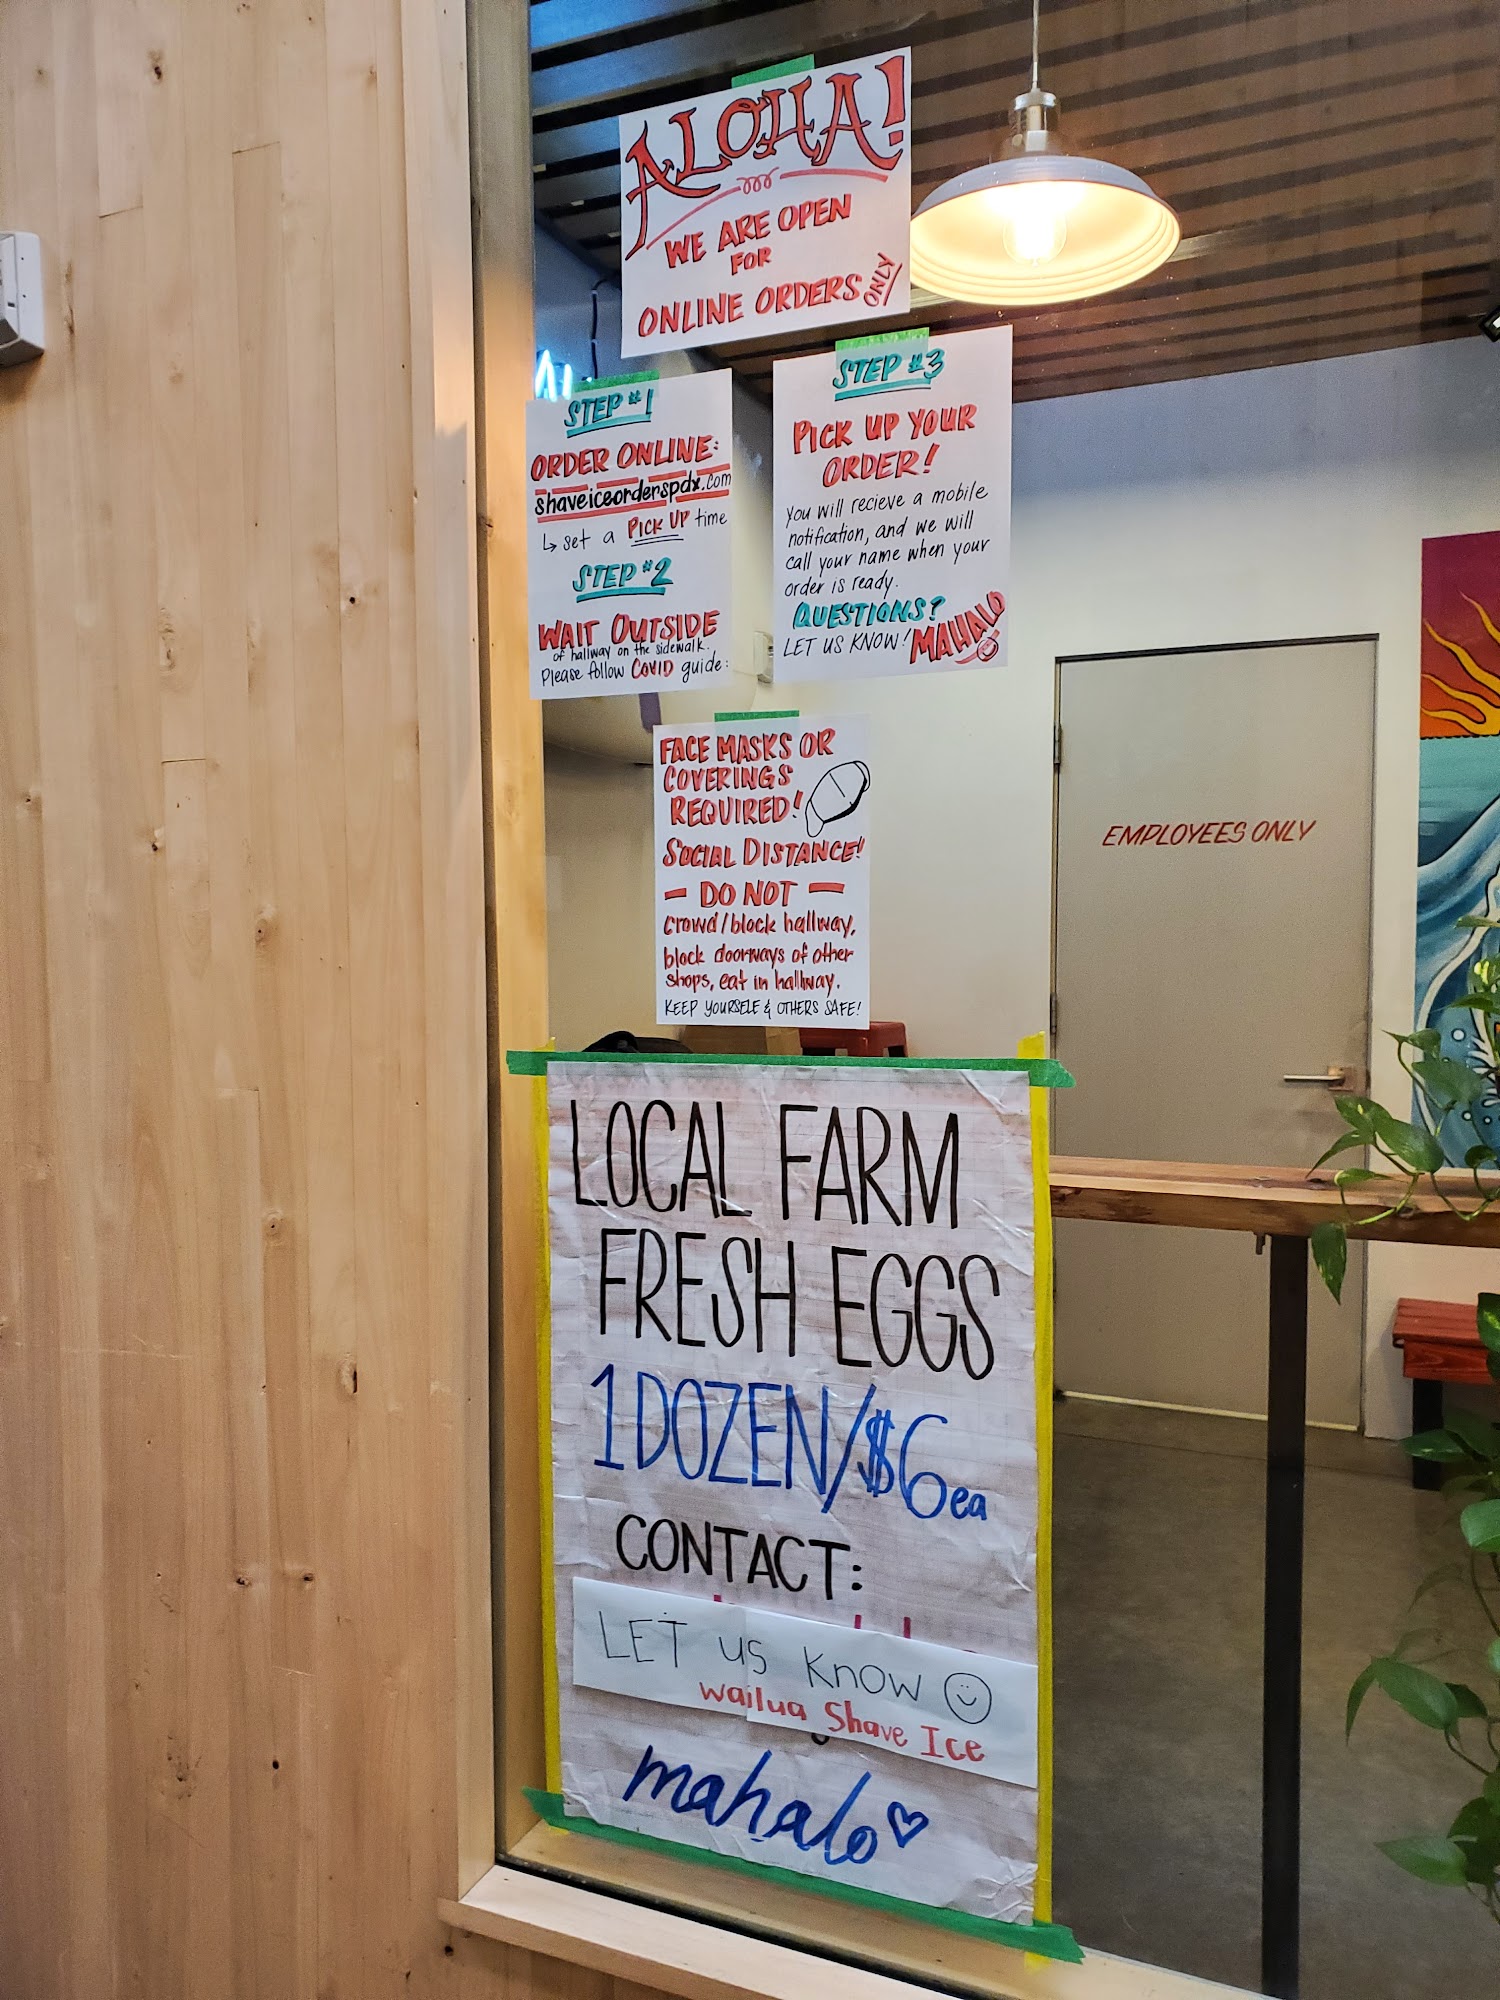 ALOHA!
WE ARE OPEN
FOR
ONLINE ORDERS ONLY
STEP #1
ORDER ONLINE:
shaveiceorderspdx.com
↳ set a PICK UP time
STEP #2
WAIT OUTSIDE
of hallway on the sidewalk.
Please follow COVID guide:
STEP #3
PICK UP YOUR
ORDER!
You will recieve a mobile
notification, and we will
call your name when your
order is ready.
QUESTIONS?
LET US KNOW! MAHALO
FACE MASKS OR
COVERINGS
REQUIRED!
SOCIAL DISTANCE!
— DO NOT —
crowd/block hallway,
block doorways of other
shops, eat in hallway.
KEEP YOURSELF & OTHERS SAFE!
EMPLOYEES ONLY
LOCAL FARM
FRESH EGGS
1 DOZEN/$6 ea
CONTACT:
LET us know
wailua Shave Ice
mahalo